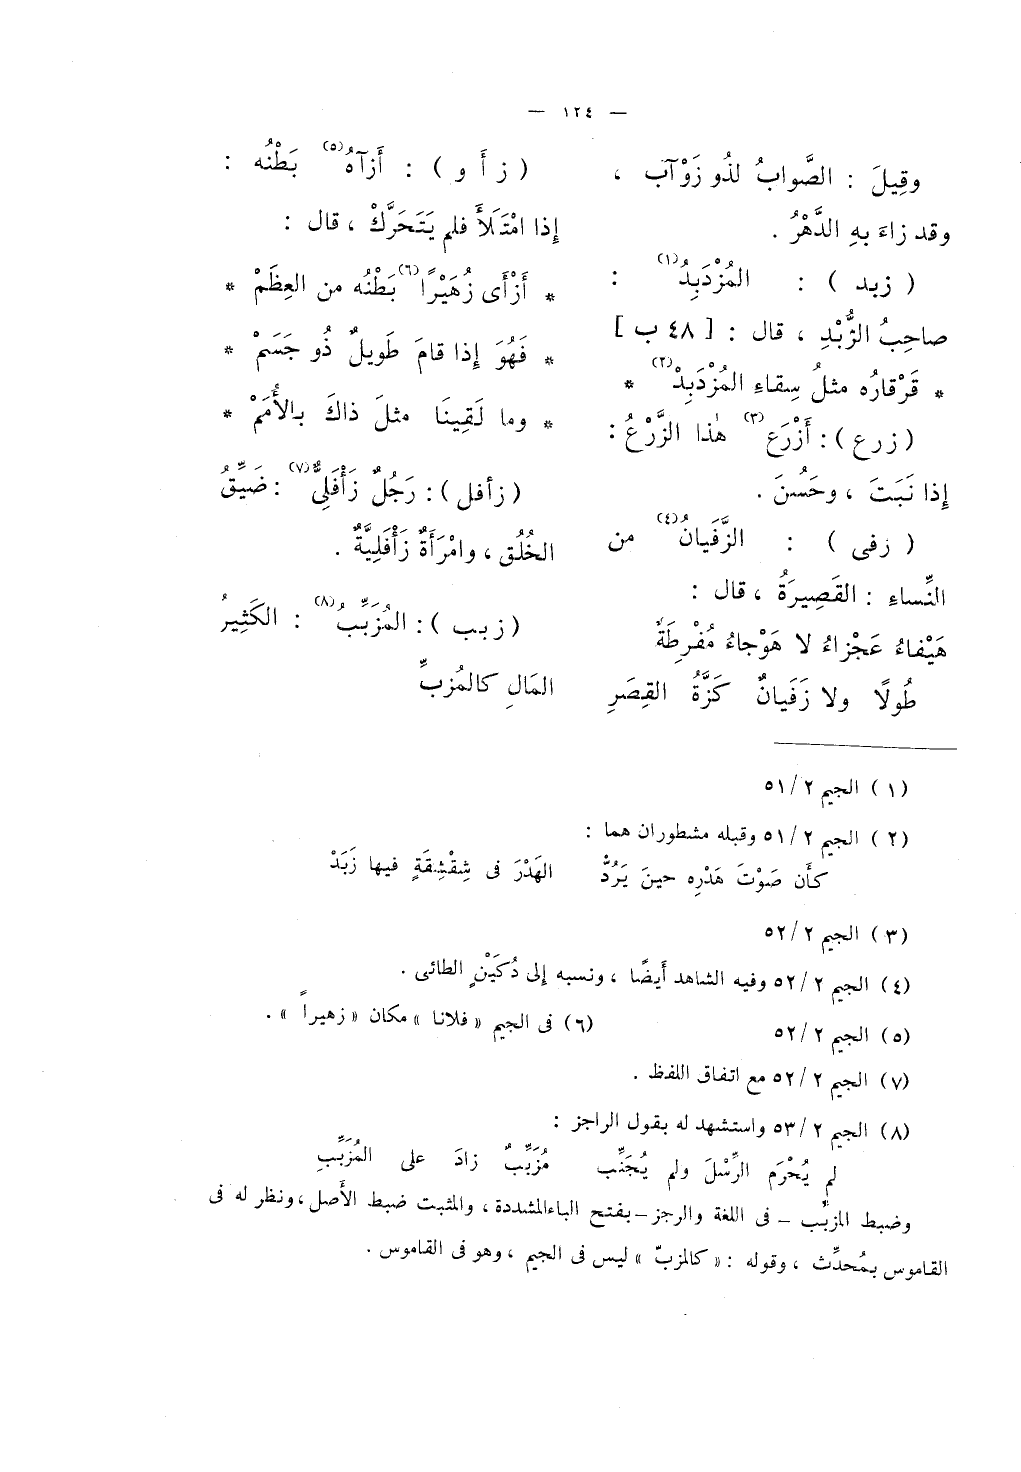 — ١٢٤ —
وقِيلَ : الصَّوابُ لذُو زَوْآب ،
وقد زاءَ بهِ الدَّهْرُ .
( زبد ) : المُزْدَبِدُ(١) :
صاحِبُ الزُّبْدِ ، قال : [ ٤٨ ب ]
* قَرْقارُه مثلُ سِقاءِ المُزْدَبِدْ(٢) *
( زرع ) : أَزْرَع(٣) هٰذا الزَّرْعُ :
إذا نَبَتَ ، وحَسُنَ .
( زفى ) : الزَّفَيانُ(٤) من
النِّساءِ : القَصِيرَةُ ، قال :
هَيْفاءُ عَجْزاءُ لا هَوْجاءُ مُفْرِطَةٌ
طُولًا ولا زَفَيانٌ كَزَّةُ القِصَرِ
( ز أ و ) : أَزآهُ(٥) بَطْنُه :
إذا امْتَلَأَ فلم يَتَحَرَّكْ ، قال :
* أَزْأَى زُهَيْرًا(٦) بَطْنُه من العِظَمْ *
* فَهُوَ إذا قامَ طَويلٌ ذُو جَسَمْ *
* وما لَقِينَا مثلَ ذاكَ بالأُمَمْ *
( زأفل ) : رَجُلٌ زَأْفَلِىٌّ(٧) : ضَيِّقُ
الخُلُق ، وامْرَأَةٌ زَأْفَلِيَّةٌ .
( زبب ) : المُزَبِّبُ(٨) : الكَثِيرُ
المَالِ كالمُزبِّ
(١) الجيم ٢ / ٥١
(٢) الجيم ٢ / ٥١ وقبله مشطوران هما :
كأَن صَوْتَ هَدْرِه حينَ يَرُدُّ الهَدْرَ فى شِقْشِقَةٍ فيها زَبَدْ
(٣) الجيم ٢ / ٥٢
(٤) الجيم ٢ / ٥٢ وفيه الشاهد أَيضًا ، ونسبه إلى دُكَيْنٍ الطائى .
(٥) الجيم ٢ / ٥٢ (٦) فى الجيم « فلانا » مكان « زهيراً » .
(٧) الجيم ٢ / ٥٢ مع اتفاق اللفظ .
(٨) الجيم ٢ / ٥٣ واستشهد له بقول الراجز :
لم يُحْرَم الرِّسْلَ ولم يُجَنَّبِ مُزَبِّبٌ زادَ على المُزَبِّبِ
وضبط المزبَّب – فى اللغة والرجز – بفتح الباء المشددة ، والمثبت ضبط الأَصل ، ونظر له فى
القاموس بمُحدِّث ، وقوله : « كالمزبّ » ليس فى الجيم ، وهو فى القاموس .